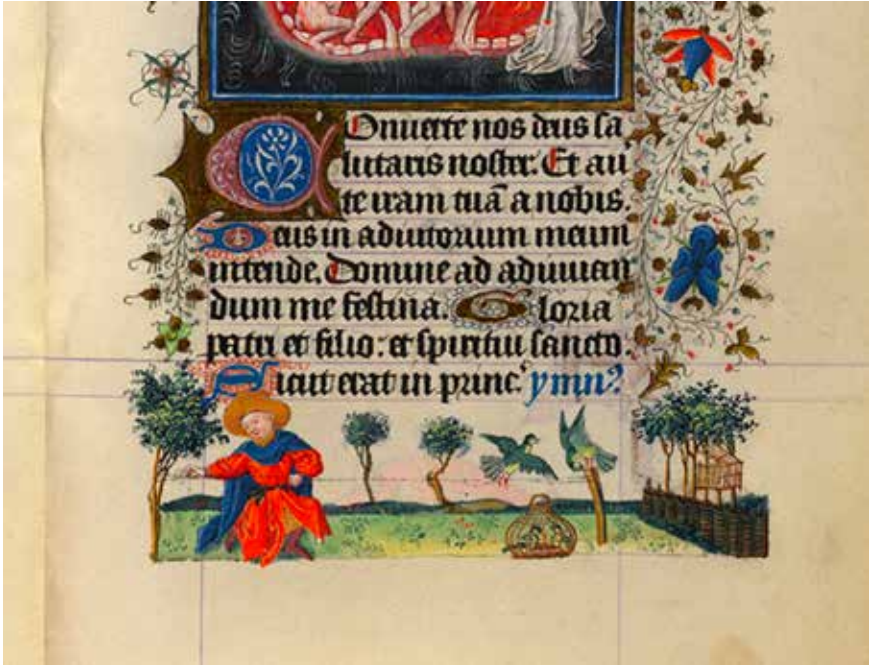 Conuerte nos deus sa
lutaris noster. Et au
te iram tuã a nobis.
Deus in adiutorium meum
intende. Domine ad adiuuan
dum me festina. Gloria
patri et filio: et spiritui sancto.
Sicut erat in princ. ymnꝰ